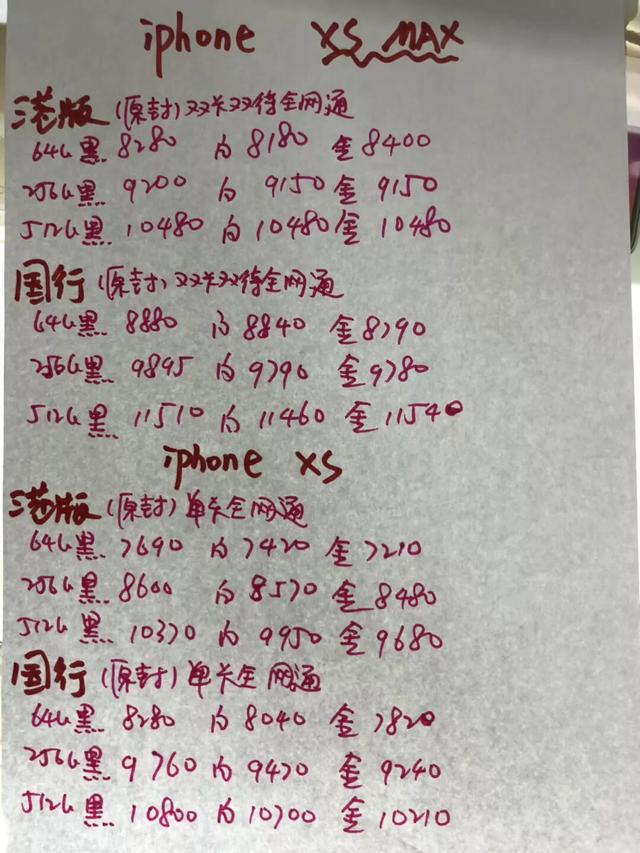 iphone XS MAX
港版(原封)双卡双待全网通
64G黑 8280 白 8180 金 8400
256G黑 9200 白 9150 金 9150
512G黑 10480 白 10480 金 10480
国行(原封)双卡双待全网通
64G黑 8880 白 8840 金 8790
256G黑 9895 白 9790 金 9780
512G黑 11510 白 11460 金 11540
iphone XS
港版(原封)单卡全网通
64G黑 7690 白 7420 金 7210
256G黑 8600 白 8570 金 8480
512G黑 10370 白 9950 金 9680
国行(原封)单卡全网通
64G黑 8280 白 8040 金 7820
256G黑 9760 白 9470 金 9240
512G黑 10800 白 10700 金 10210